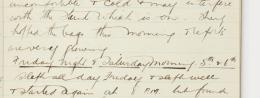 uncomfortable & cold & may interfere
with the Saint What is on. They
hoped the bags this morning & reports
are very glowing
Friday night & Saturday morning 5th & 6th
Slept all day Friday & Slept well
& started again at 8 PM but found